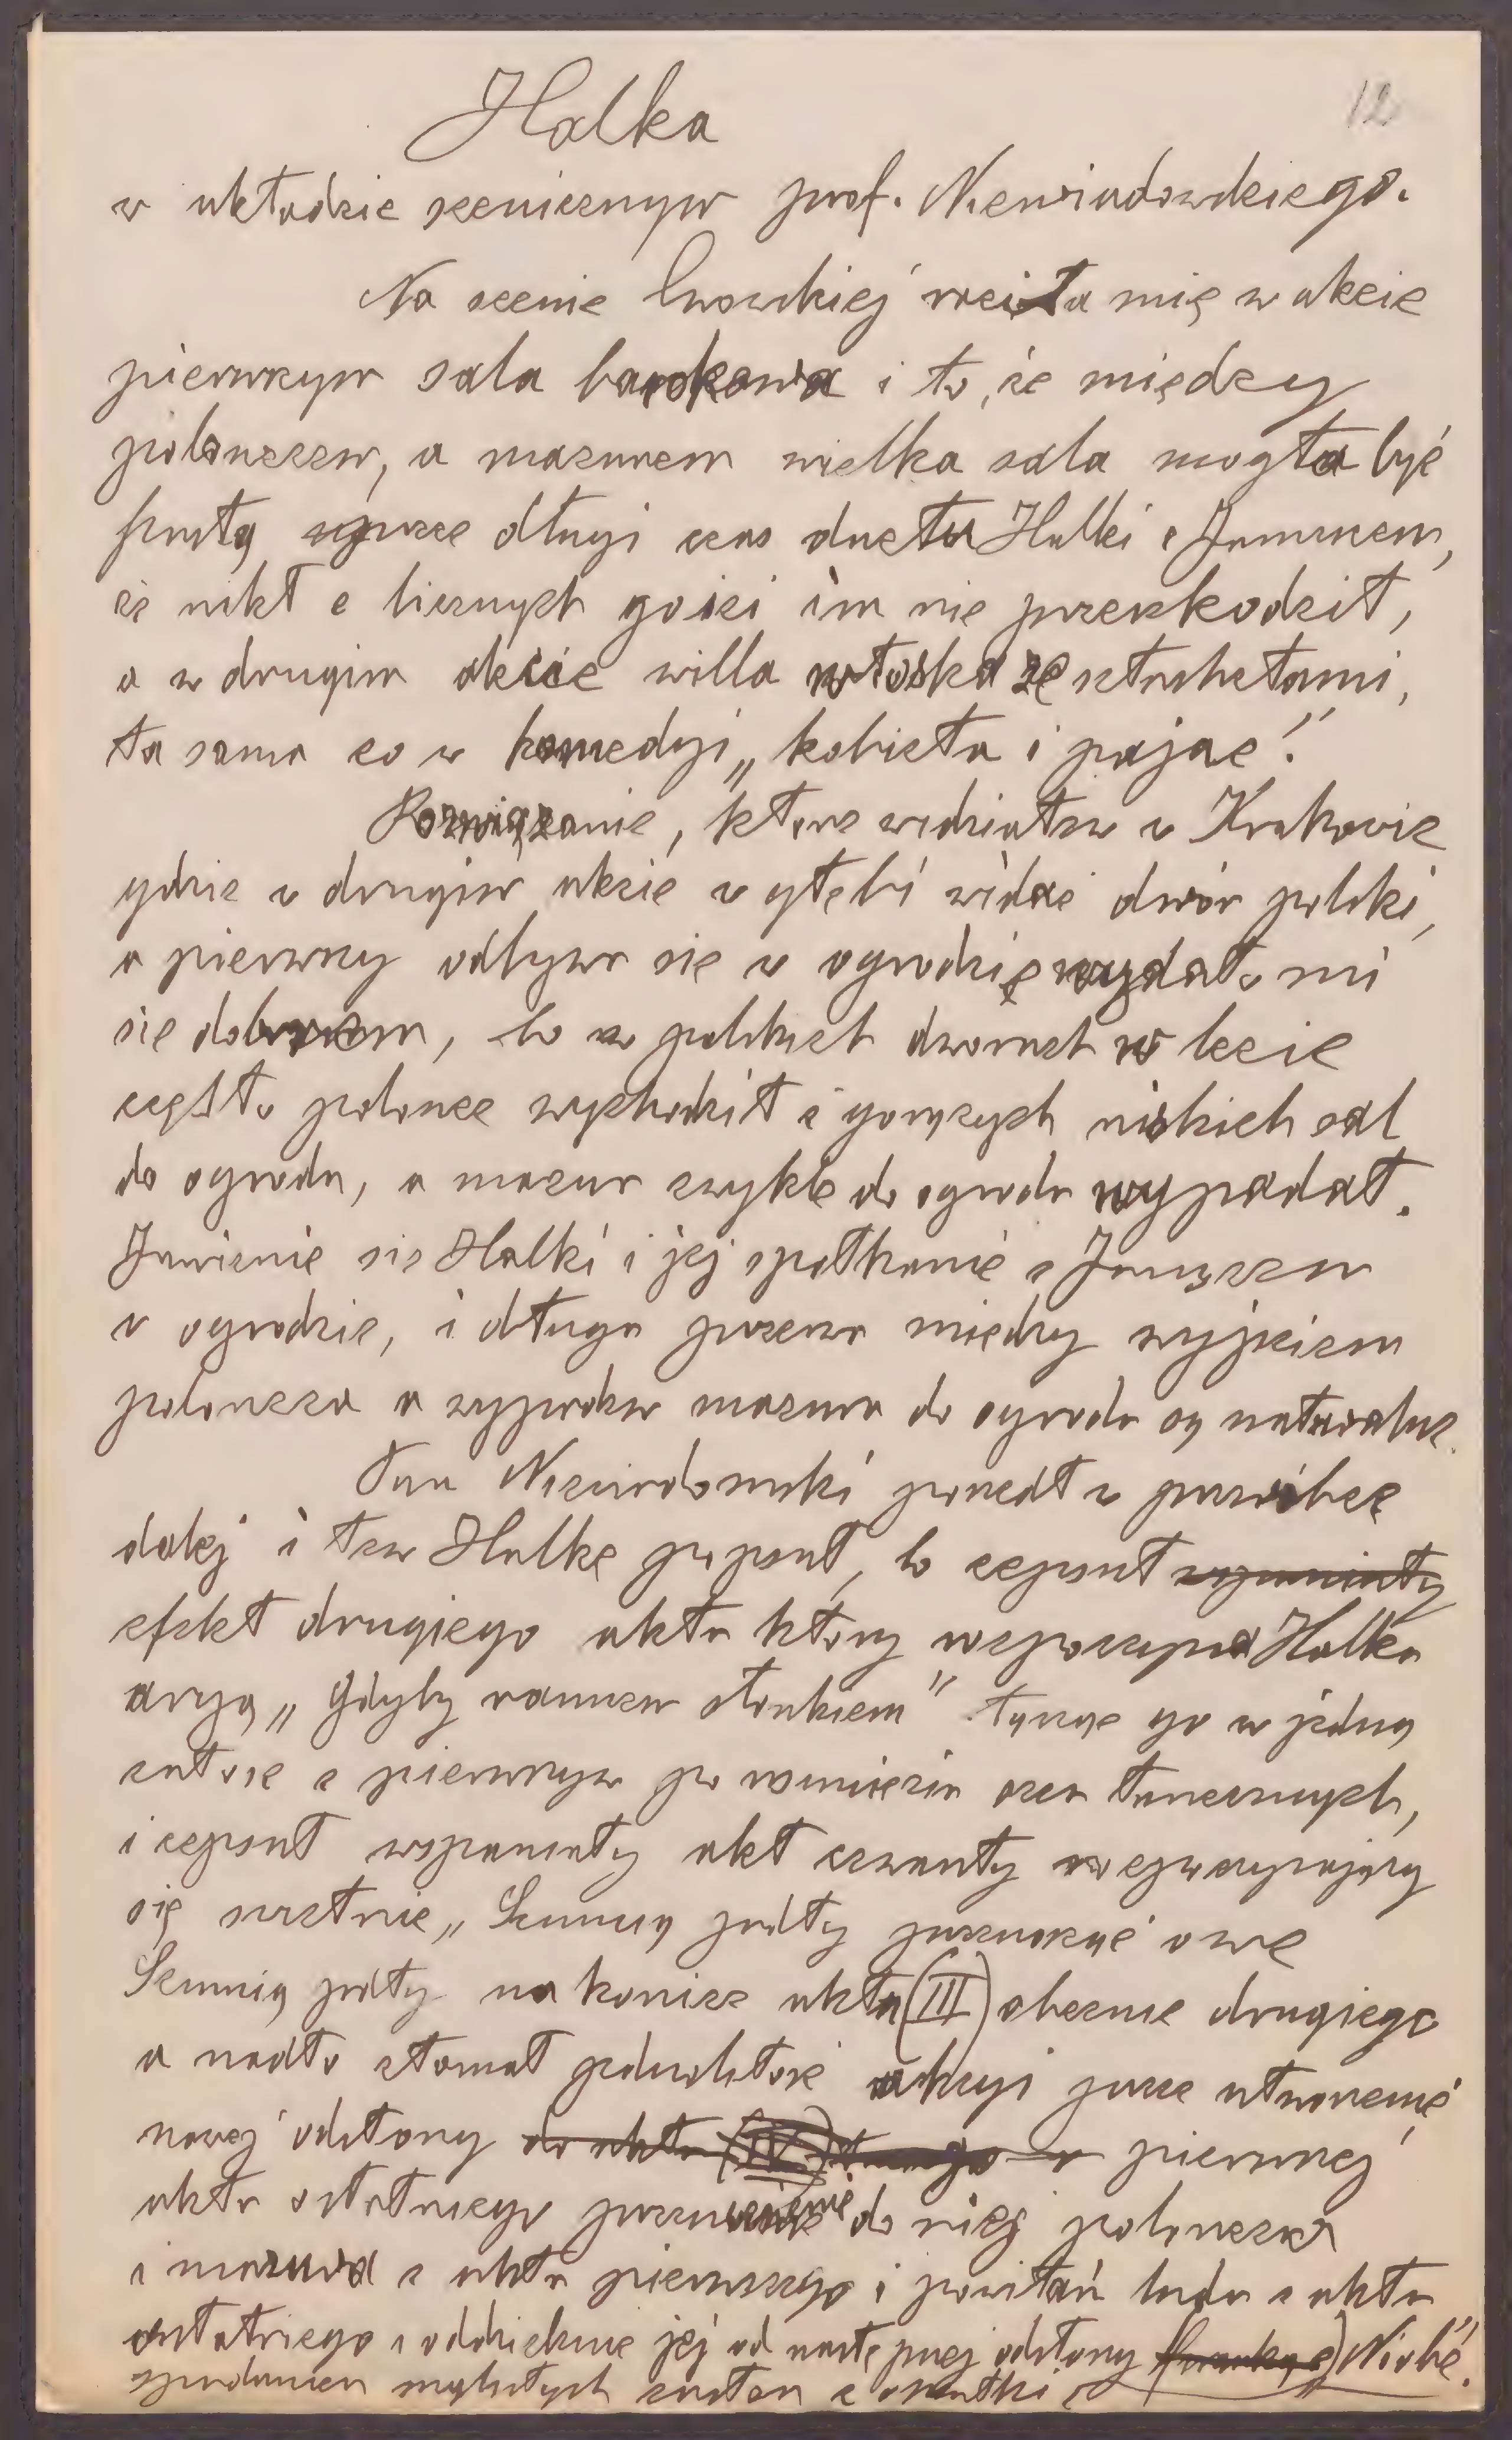 12
Halka
w układzie scenicznym prof. Niewiadomskiego.
Na scenie lwowskiej raziła mię w akcie
pierwszym sala barokowa i to, że między
polonezem, a mazurem wielka sala mogła być
pustą przez długi czas duetu Halki z Januszem,
że nikt z licznych gości im nie przeszkodził,
a w drugim akcie willa włoska ze sztachetami,
ta sama co w komedyi „kobieta i pajac".
Rozwiązanie, które widziałem w Krakowie
gdzie w drugim akcie w głębi widać dwór polski,
a pierwszy odbywa się w ogrodzie wydało mi
się dobrem, bo w polskich dworach w lecie
często polonez wychodził z gorących niskich sal
do ogrodu, a mazur zwykle do ogrodu wypadał.
Jawienie się Halki i jej spotkanie z Januszem
w ogrodzie, i długa przerwa między wyjściem
poloneza a wypadem mazura do ogrodu są naturalne.
Pan Niewiadomski poszedł w przeróbce
dalej i tem Halkę popsuł, bo zepsuł wspaniały
efekt drugiego aktu który rozpoczyna Halka
aryą „Gdyby rannem słonkiem" łącząc go w jedną
całość z pierwszym po usunięciu zeń tanecznych,
i zepsuł wspaniały akt czwarty rozpoczynający
się świetnie „Szumią jodły" przenosząc owe
Szumią jodły na koniec aktu (III) obecnie drugiego
a nadto złamał jednolitość akcyi przez utworzenie
nowej odsłony do aktu (IV) w pierwszej
aktu ostatniego przeniesienie do niej poloneza
i mazura z aktu pierwszego i powitań ludu z aktu
ostatniego i oddzielenie jej od następnej odsłony Niobé.
spadaniem zasłon z